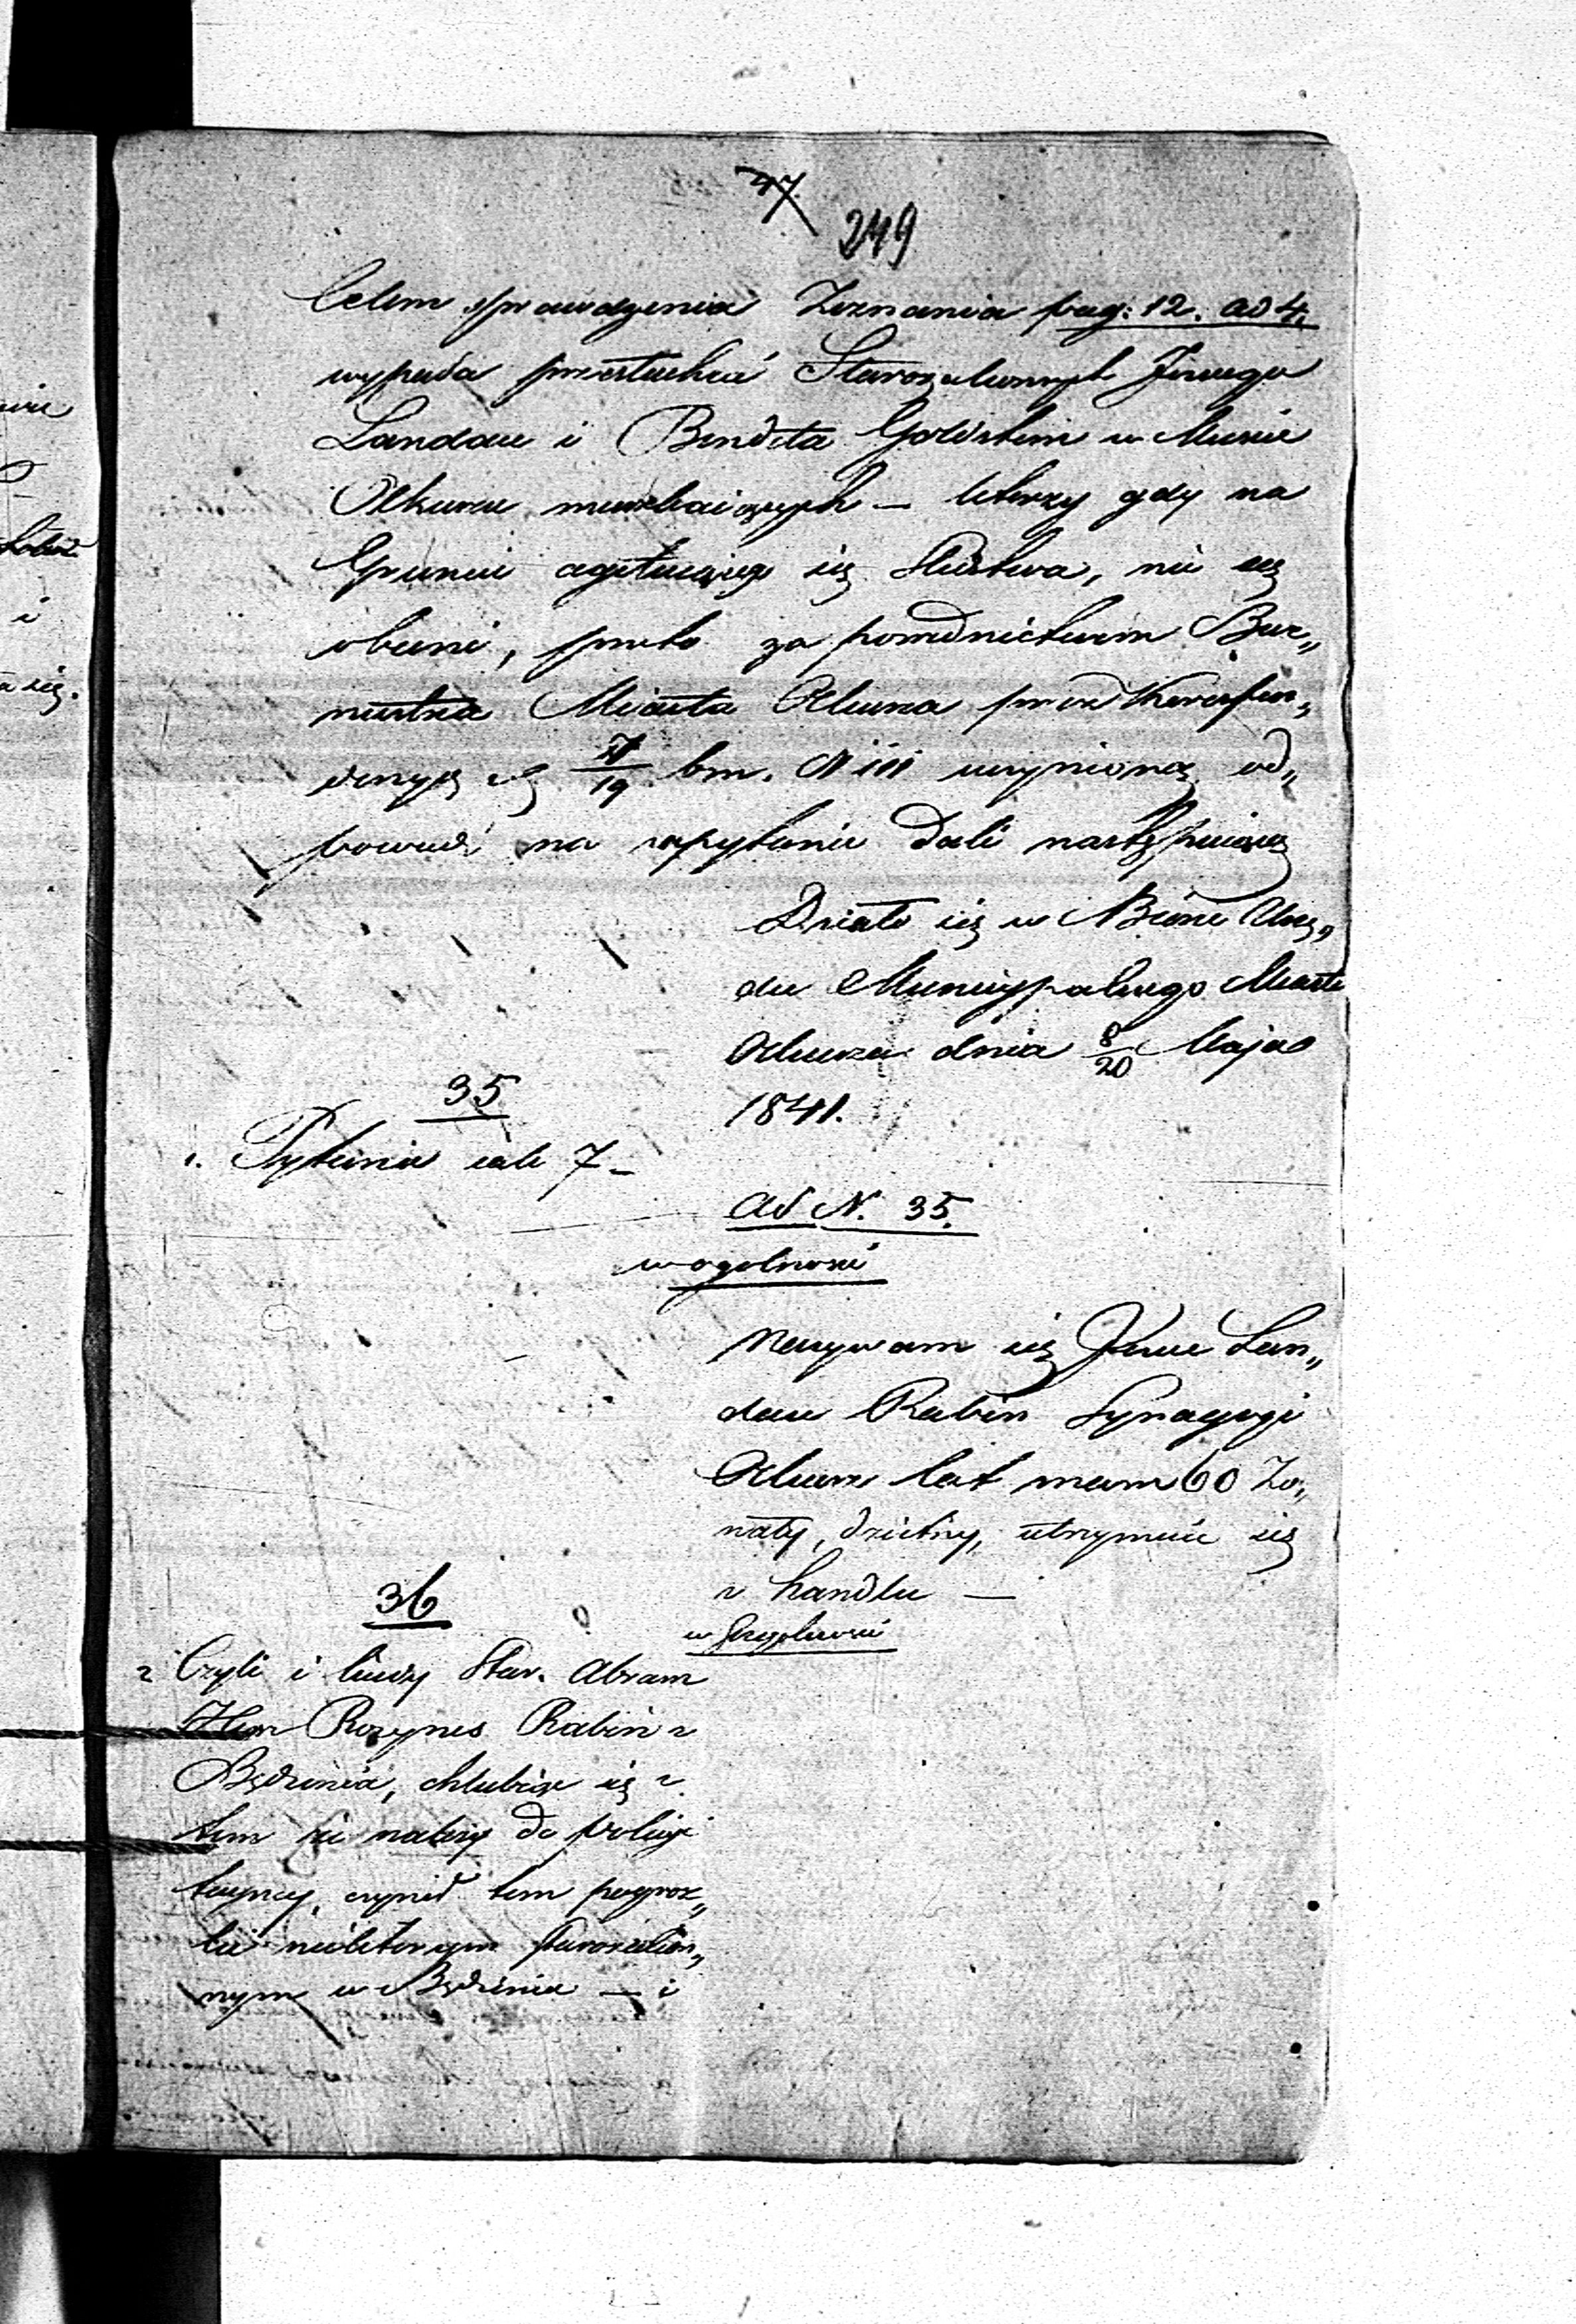 47.
249
Celem sprawdzenia Zeznania pag: 12. ad 4.
wypada przesłuchać Starozakonnych
Landau i Bendeta Goldstein w Mieście
Olkuszu mieszkaiących — którzy gdy na
Gruncie agituiącego się Śledztwa, nie są
obecni, przeto za pośrednictwem Bur„
mistrza Miasta Olkusza przez Korespon„
dencyą z d 7/19 bm. N uczynioną od„
powiedź na zapytanie dali następuiącą
Działo się w Biórze Urzę„
du Municypalnego Miasta
Olkusza dnia 8/20 Maja
1841.
35
1. Pytania iak 7 –
Ad N. 35.
w ogólności
Nazywam się Lan„
dau Rabin Synagogi
Olkusz lat mam 60 Żo„
naty, dzietny, utrzymuie się
z handlu —
w szczególności
36
2 Czyli i kiedy Star. Abram
Rozynes Rabin z
Będzinia, chlubiąc się z
tem że należy do policyi
taynéy, czynił tem pogroz„
ki niektórym starozakon„
nym w Będzinie — i